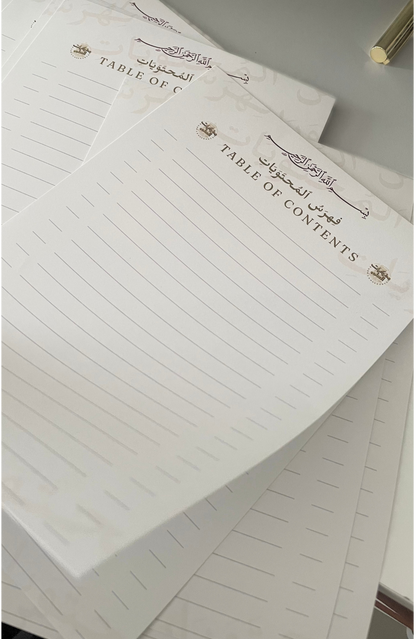 بسم الله الرحمن الرحيم
فهرس المحتويات
TABLE OF CONTENTS
بسم الله الرحمن الرحيم
المحتويات
TABLE OF C